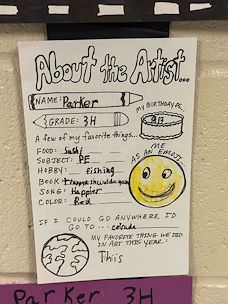 About the Artist...
NAME: Parker
MY BIRTHDAY IS...
GRADE: 3H
A few of my favorite things...
FOOD: Sushi
SUBJECT: PE
HOBBY: fishing
BOOK:
SONG: Happier
COLOR: Red
ME
AS AN EMOJI...
IF I COULD GO ANYWHERE, I'D
GO TO ...
MY FAVORITE THING WE DID
IN ART THIS YEAR!
This
Parker 3H